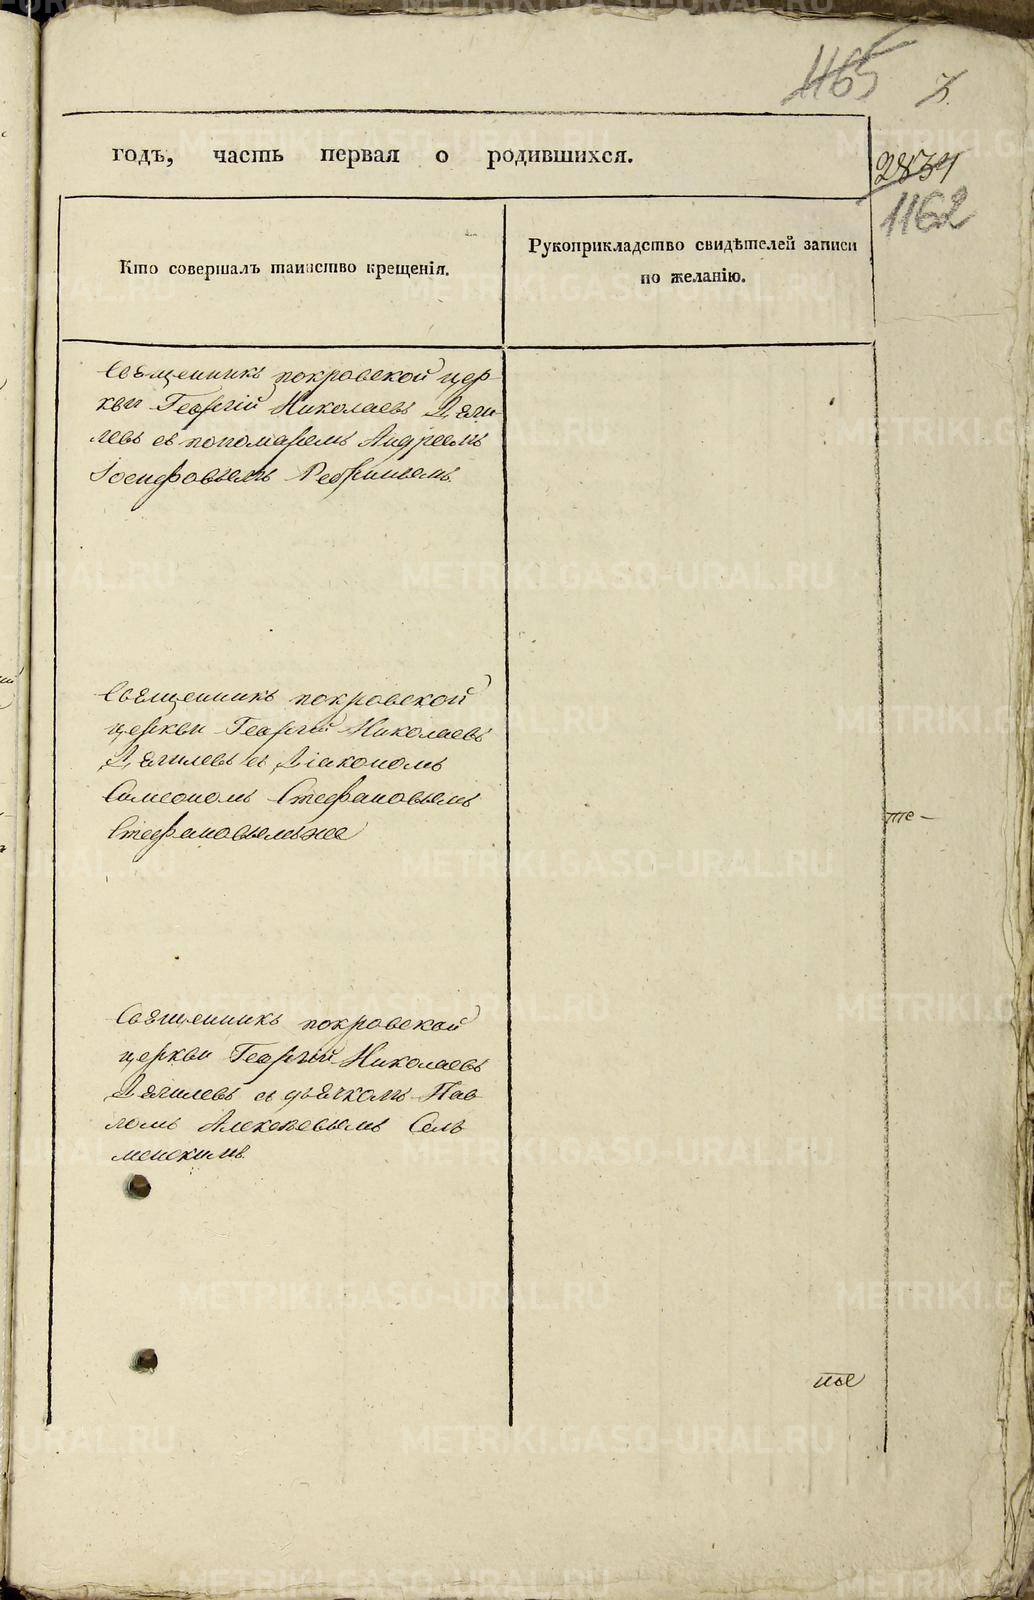 1165 7.
годъ, часть первая о родившихся.
2834
1162
Кто совершалъ таинство крещенія.
Рукоприкладство свидѣтелей записи
по желанію.
Священникъ покровской цер-
кви Георгій Николаевъ Дяги-
левъ съ пономаремъ Андреемъ
Іосифовымъ
Священникъ покровской
церкви Георгій Николаевъ
Дягилевъ съ Діакономъ
Симеономъ Стефановымъ
Стефановымъ же
те-
Священникъ покровской
церкви Георгій Николаевъ
Дягилевъ съ дьячкомъ Пав-
ломъ Алексѣевымъ Сель
менскимъ.
METRIKI.GASO-URAL.RU